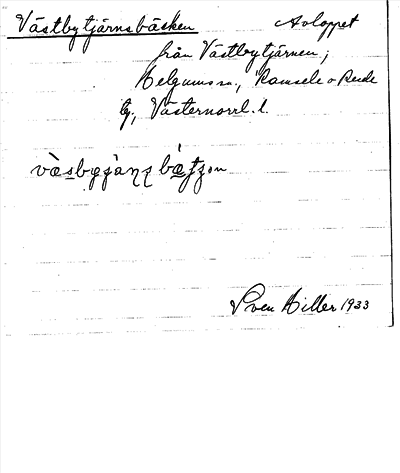 Västbytjärnsbäcken Avloppet
från Västbytjärnen;
Helgums sn, Ramsele o Resele
tg, Västernorrl. l.
Sven Hiller 1933